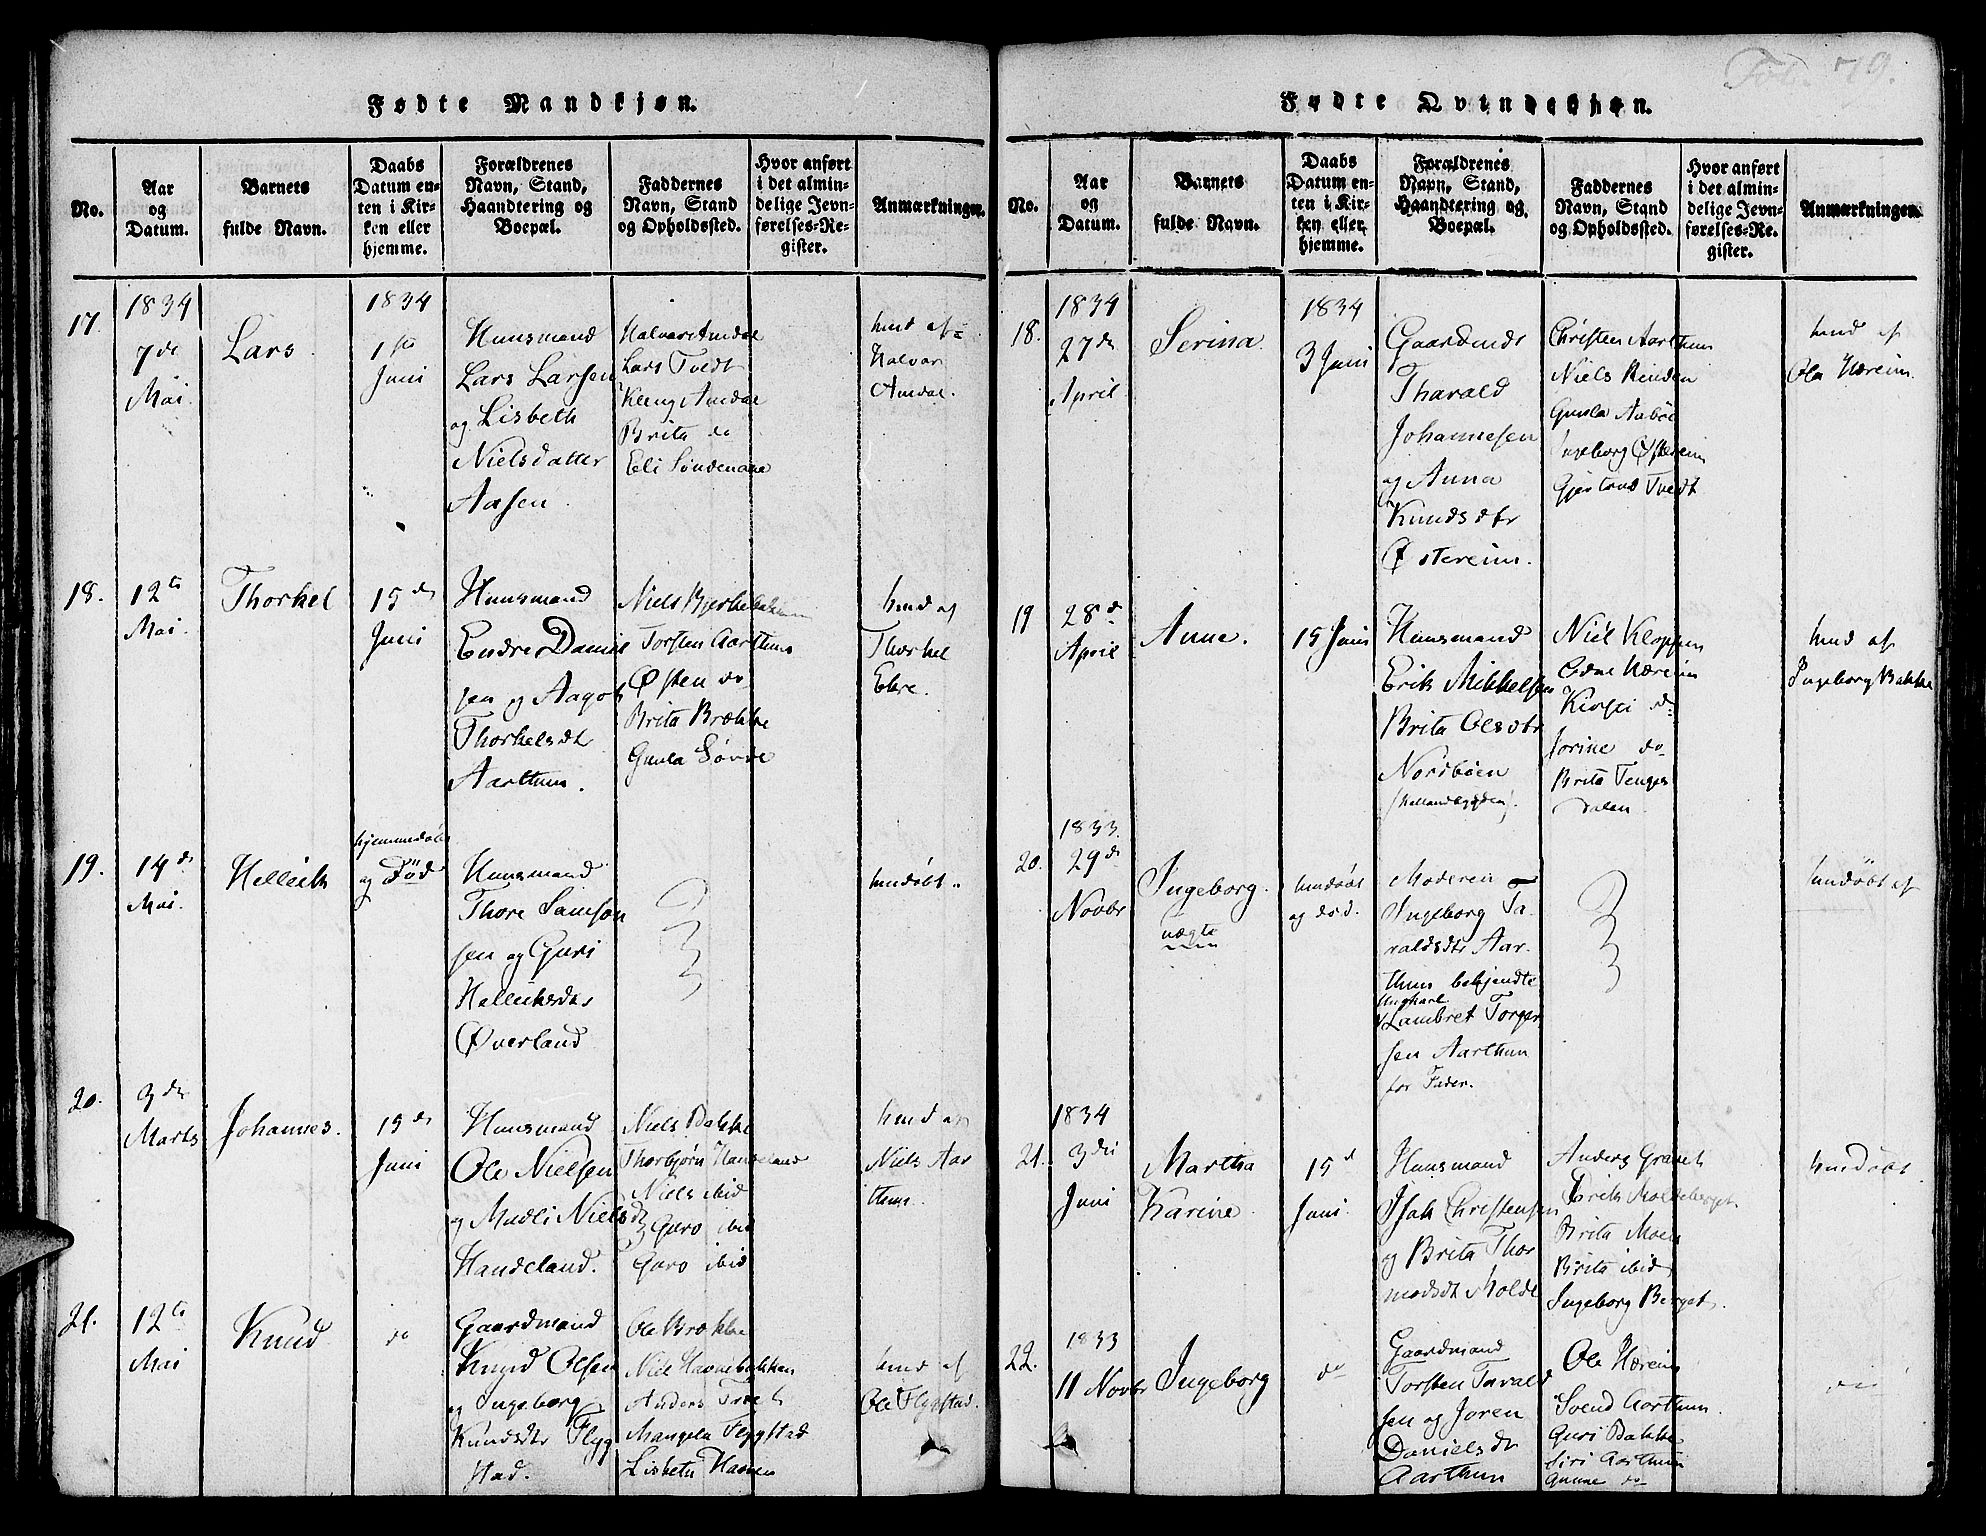 Fol. 79.
Fødte Mandkjøn.
No.
Aar
og
Datum.
Barnets
fulde Navn.
Daabs
Datum en-
ten i Kir-
ken eller
hjemme.
Forældrenes
Navn, Stand,
Haandtering og
Boepæl.
Faddernes
Navn, Stand
og Opholdssted.
Hvor anført
i det almin-
delige Jevn-
førelses-Re-
gister.
Anmærkninger.
17.
1834
7de
Mai.
Lars
1834
1ste
Juni
Huusmand
Lars Larsen
og Lisbeth
Nielsdatter
Aasen.
Halvar Amdal
Lars Tvedt
Amdal
Brita do
Eli
hmd af
Halvar
Amdal.
18.
12te
Mai.
Thorkel
15de
Juni
Huusmand
Endre Daniel
sen og Aagot
Thorkelsdt
Aarthun.
Niels
Torsten Aarthun
Østen do
Brita Brække
Gunla
hmd af
Thorkel
19.
14de
Mai.
Hellick
hjemmedøbt
og Død
Huusmand
Thore Samson
sen og Guri
Øverland
hmdøbt.
20.
3die
Marts
Johannes.
15de
Juni
Huusmand
Ole Nielsen
og Madli Nielsd
Handeland.
Niels Bakke
Thorbjørn Handeland
Niels ibid
Guro ibid
Guro ibid
hmd af
Niels Aar
thun.
21.
12te
Mai
Knud
do
Gaardmand
Knud Olsen
og Ingeborg
Knudsdtr Flyg
stad.
Ole Brække
Niel
Anders Tvedt
Mangela Flygstad
Lisbeth
hmd af
Ole Flygstad.
Fødte Qvindekjøn.
No.
Aar
og
Datum.
Barnets
fulde Navn.
Daabs
Datum en-
ten i Kir-
ken eller
hjemme.
Forældrenes
Navn, Stand,
Haandtering og
Boepæl.
Faddernes
Navn, Stand
og Opholdssted.
Hvor anført
i det almin-
delige Jevn-
førelses-Re-
gister.
Anmærkninger.
18.
1834
27de
April
Serina
1834
3 Juni
Gaardmd
Tharald
Johannesen
og Anna
Knudsdtr
Østereim.
Christen Aarthun
Niels Rinden
Gunla Aabøe
Ingeborg Østereim
Tvedt
hmd af
Ole Hæreim.
19
28de
April
Anne.
15 Juni
Huusmand
Erik Mikkelsen
Brita Olsdtr
Nordbøen
Niel Kloppen
Hæreim
do
Jorine do
Brita Tenges
dalen
hmd af
Ingeborg Bakke
20.
1833.
29de
Novbr
Ingeborg.
uægte
hmdøbt
og død.
Moderen
Ingeborg Ta-
raldsdtr Aar-
thun bekjendte
Ungkarl
Lambret Torger
sen Aarthun
for Fader.
hmdøbt af
21.
1834
3die
Juni
Martha
Karine
15d
Juni.
Huusmand
Isak Christensen
og Brita Thor
modsdt Molde
Anders
Brita Moen
Brita ibid
Ingeborg Berget.
hmdøbt
22.
1833
11 Novbr
Ingeborg
do
Gaardmand
Torsten Tarald
sen og Joren
Danielsdt
Aarthun
Ole Hæreim
Svend Aarthun.
Guri Bakke
Siri Aarthun
Gunne do
do